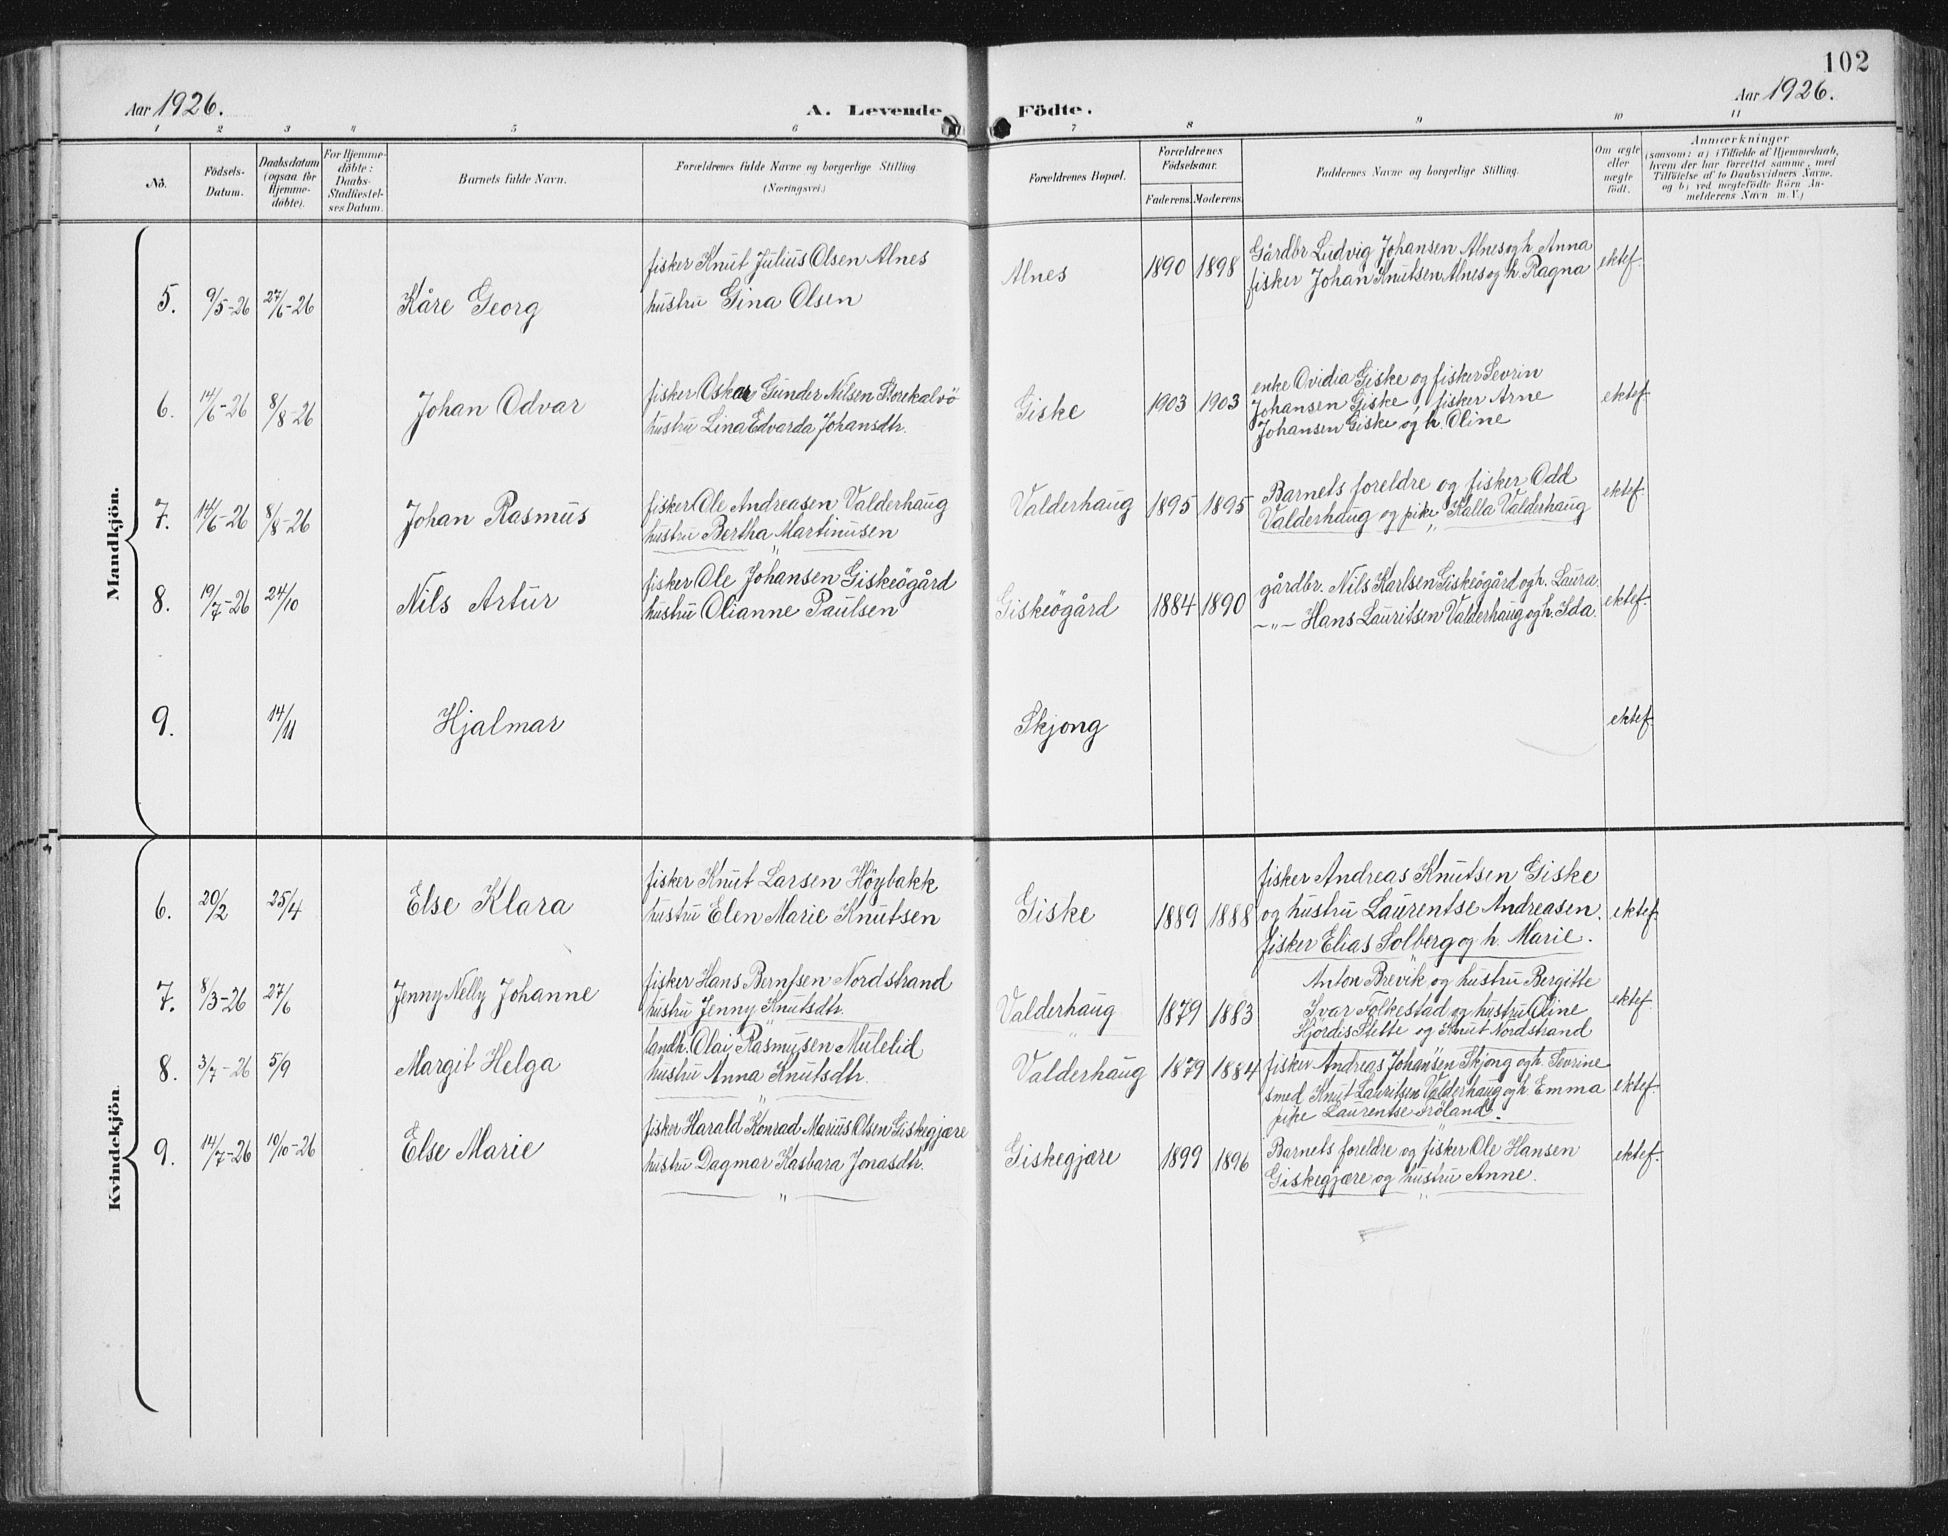 102
Aar 1926.
A. Levende Födte.
Aar 1926.
1 2 3 4 5 6 7 8 9 10 11
No.
Födsels-Datum.
Daabsdatum (ogsaa for Hjemme-döbte).
For Hjemme-döbte: Daabs-Stadfæstel-ses Datum.
Barnets fulde Navn.
Forældrenes fulde Navne og borgerlige Stilling.
(Næringsvei.)
Forældrenes Bopæl.
Forældrenes Födselsaar.
Faderens. Moderens.
Faddernes Navne og borgerlige Stilling.
Om ægte eller uægte födt.
Anmærkninger
(saasom: a) i Tilfælde af Hjemmedaab,
hvem der har forrettet samme, med
Tilföielse af to Daabsvidners Navne.
og b) ved uægtefödte Börn An-
melderens Navn m. V.)
Mandkjön.
5. 9/5-26 27/6-26 Kåre Georg
fisker Knut Julius Olsen Alnes
hustru Gina Olsen
Alnes 1890 1898
Gårdbr Ludvig Johansen Alnes og h. Anna
fisker Johan Knutsen Alnes og h. Ragna
ektef.
6. 14/6-26 8/8-26 Johan Odvar
fisker Oskar Gunder Nilsen
hustru Lina Edvarda Johansdtr.
Giske 1903 1903
enke Ovidia Giske og fisker Sevrin
Johansen Giske, fisker Arne
Johansen Giske og h. Oline
ektef
7. 14/6-26 8/8-26 Johan Rasmus
fisker Ole Andreasen Valderhaug
hustru Bertha Martinusen
Valderhaug 1895 1895
Barnets foreldre og fisker Odd
Valderhaug og pike Kalla Valderhaug
ektef
8. 19/7-26 24/10 Nils Artur
fisker Ole Johansen Giskeögård
hustru Olianne Paulsen
Giskeögård 1884 1890
gårdbr. Nils Karlsen Giskeögård og h. Laura.
-"- Hans Lauritsen Valderhaug og h. Ida.
ektef.
9. 14/11 Hjalmar
Skjong
ektef
Kvindekjön
6. 20/2 25/4 Else Klara
fisker Knut Larsen Höybakk
hustru Elen Marie Knutsen
Giske 1889 1888
fisker Andreas Knutsen Giske
og hustru Laurentse Andreasen.
fisker Elias Solberg og h. Marie.
ektef.
7. 8/3-26 27/6 Jenny Nelly Johanne
fisker Hans Berntsen Nordstrand
hustru Jenny Knutsdtr.
Valderhaug 1879 1883
Anton Brevik og hustru Bergitte
Ivar Folkestad og hustru Oline
Hjördis Slette og Knut Nordstrand
ektef
8. 3/7-26 5/9 Margit Helga
landh. Olai Rasmusen Mulelid
hustru Anna Knutsdtr.
Valderhaug 1879 1884
fisker Andreas Johansen Skjong og h. Sevrine
smed Knut Lauritsen Valderhaug og h Emma
pike Laurentse Fröland.
ektef.
9. 14/7-26 10/10-26 Else Marie
fisker Harald Konrad Marius Olsen Giskegjære
hustru Dagmar Kasbara Jonasdtr.
Giskegjære 1899 1896
Barnets foreldre og fisker Ole Hansen
Giskegjære og hustru Anne.
ektef.